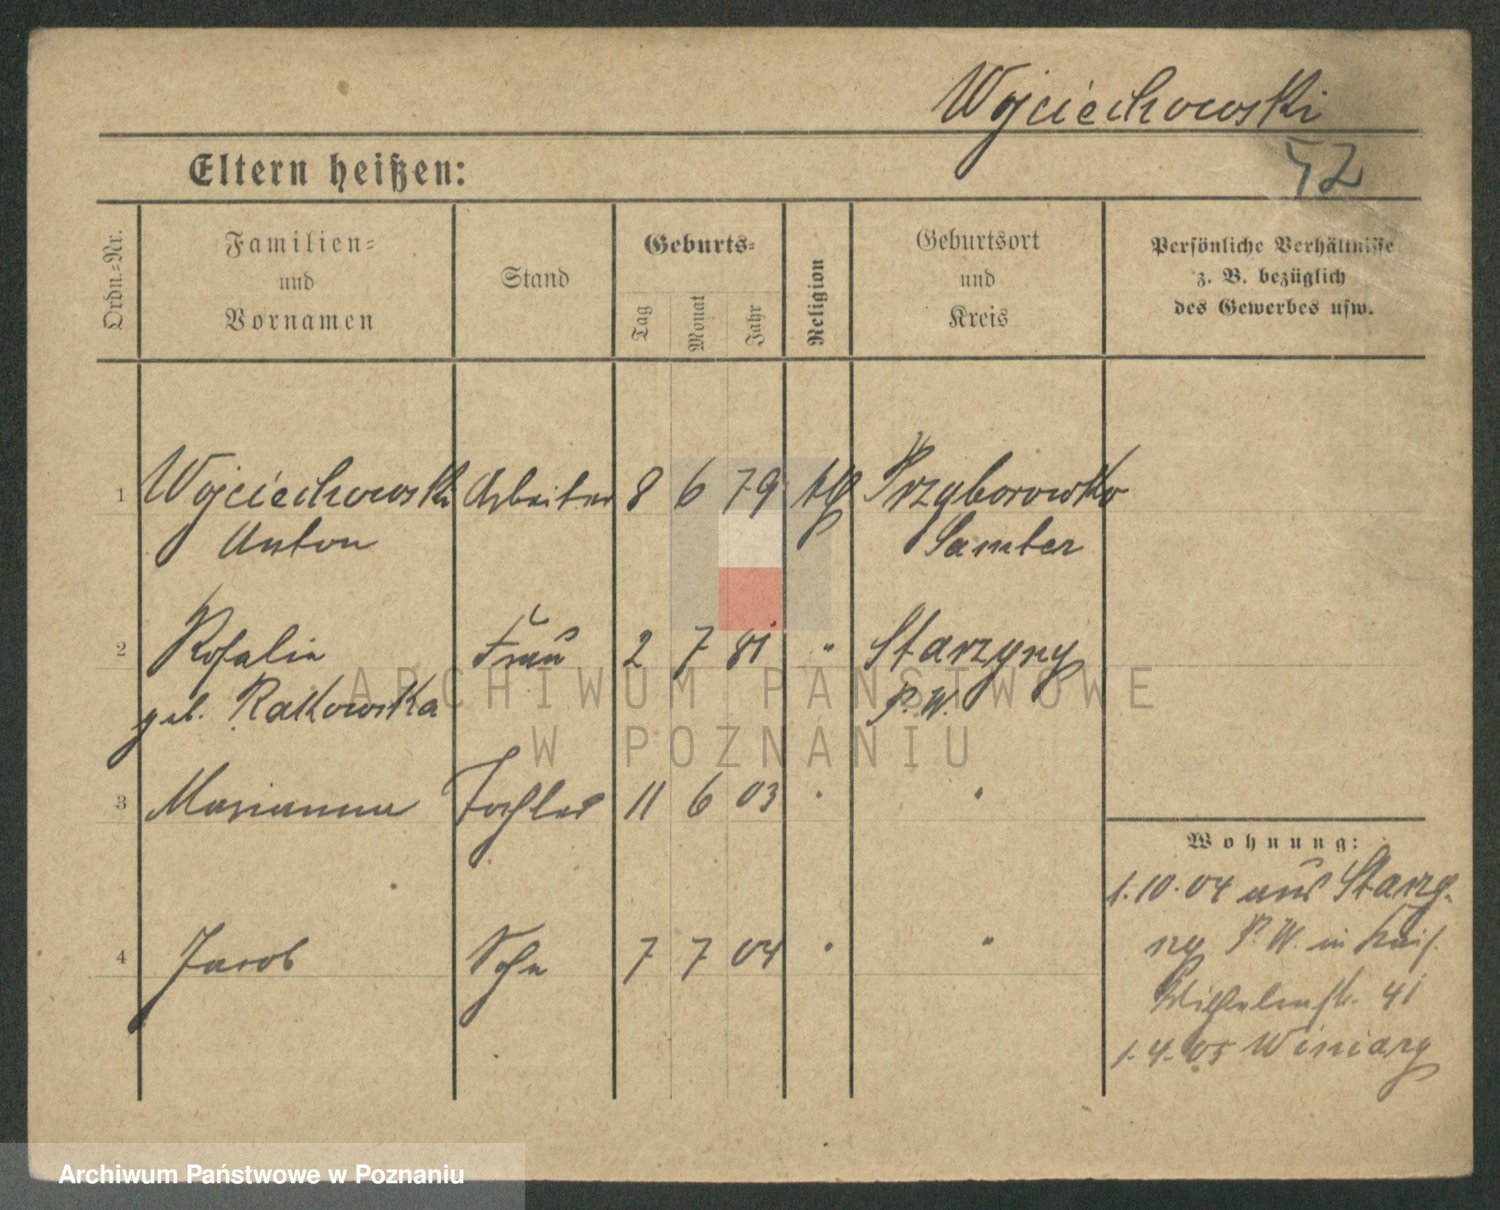 Wojciechowski
52
Eltern heißen:
Ordn.=Nr.
Familien=
und
Vornamen
Stand
Geburts=
Tag
Monat
Jahr
Religion
Geburtsort
und
Kreis
Persönliche Verhältnisse
z. B. bezüglich
des Gewerbes usw.
1 Wojciechowski Arbeiter 8 6 79 kth Przyborowko
Anton Samter
2 Rosalie Frau 2 7 81 " Starzyny
geb. Ratkowska P. W.
3 Marianna Tochter 11 6 03 " "
4 Jacob Sohn 7 7 04 " "
Wohnung:
1.10.04 aus Starzy-
ny P. W. in Kais.
Wilhelmstr. 41
1.4.05 Winiary
ARCHIWUM PAŃSTWOWE
W POZNANIU
Archiwum Państwowe w Poznaniu